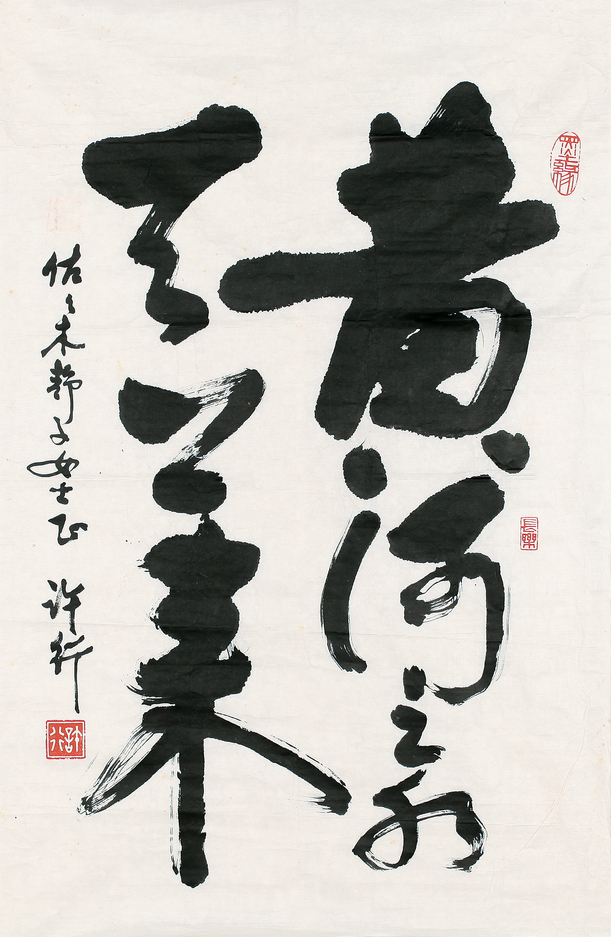 黄河之水
天上来
佐々木静子女士正 许行
長樂
許行